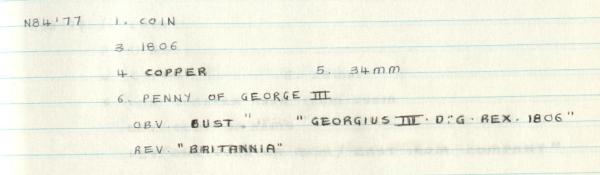 N84'77 1. COIN
3. 1806
4. COPPER 5. 34mm
6. PENNY OF GEORGE III
OBV. BUST." "GEORGIUS III· D:G· REX. 1806"
REV. "BRITANNIA"